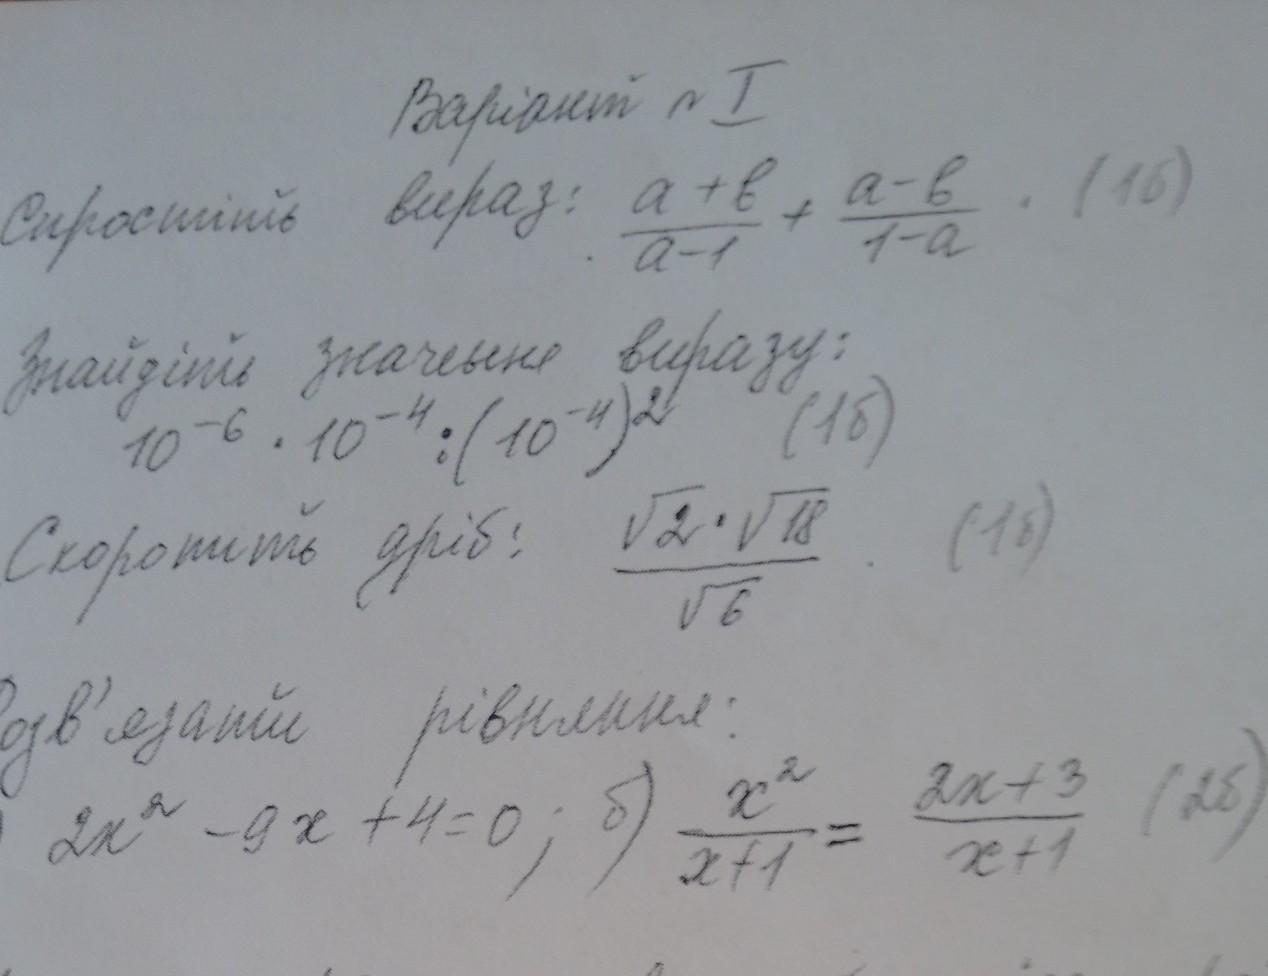 Варіант № I
Спростіть вираз: \frac{a+b}{a-1} + \frac{a-b}{1-a}. (1б)
Знайдіть значення виразу:
10^{-6} · 10^{-4} : (10^{-4})^2 (1б)
Скоротить дріб: \frac{√2·√18}{√6}. (1б)
Розв'язати рівняння:
) 2x^2 - 9x + 4 = 0; б) \frac{x^2}{x+1} = \frac{2x+3}{x+1} (2б)